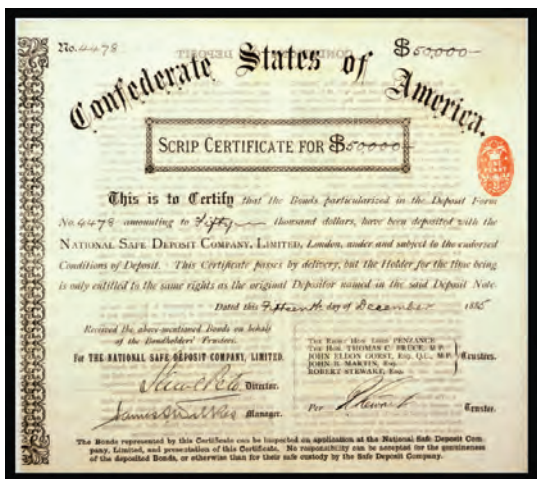 No. 4478
$50,000-
Confederate States of America.
SCRIP CERTIFICATE FOR $50000
This is to Certify that the Bonds particularized in the Deposit Form
No. 4478 amounting to Fifty thousand dollars, have been deposited with the
NATIONAL SAFE DEPOSIT COMPANY, LIMITED, London, under and subject to the endorsed
Conditions of Deposit. This Certificate passes by delivery, but the Holder for the time being
is only entitled to the same rights as the original Depositor named in the said Deposit Note.
Dated this Fifteenth day of December 1885
Received the above-mentioned Bonds on behalf
of the Bondholders' Trustees.
For THE NATIONAL SAFE DEPOSIT COMPANY, LIMITED.
Director.
James Wilkes Manager.
THE RIGHT HON. LORD PENZANCE
THE HON. THOMAS C. BRUCE, M.P.
JOHN ELDON GORST, Esq. Q.C., M.P.
JOHN B. MARTIN, Esq.
ROBERT STEWART, Esq.
Trustees.
Per R Stewart Trustee.
The Bonds represented by this Certificate can be inspected on application at the National Safe Deposit Com-
pany, Limited, and presentation of this Certificate. No responsibility can be accepted for the genuineness
of the deposited Bonds, or otherwise than for their safe custody by the Safe Deposit Company.